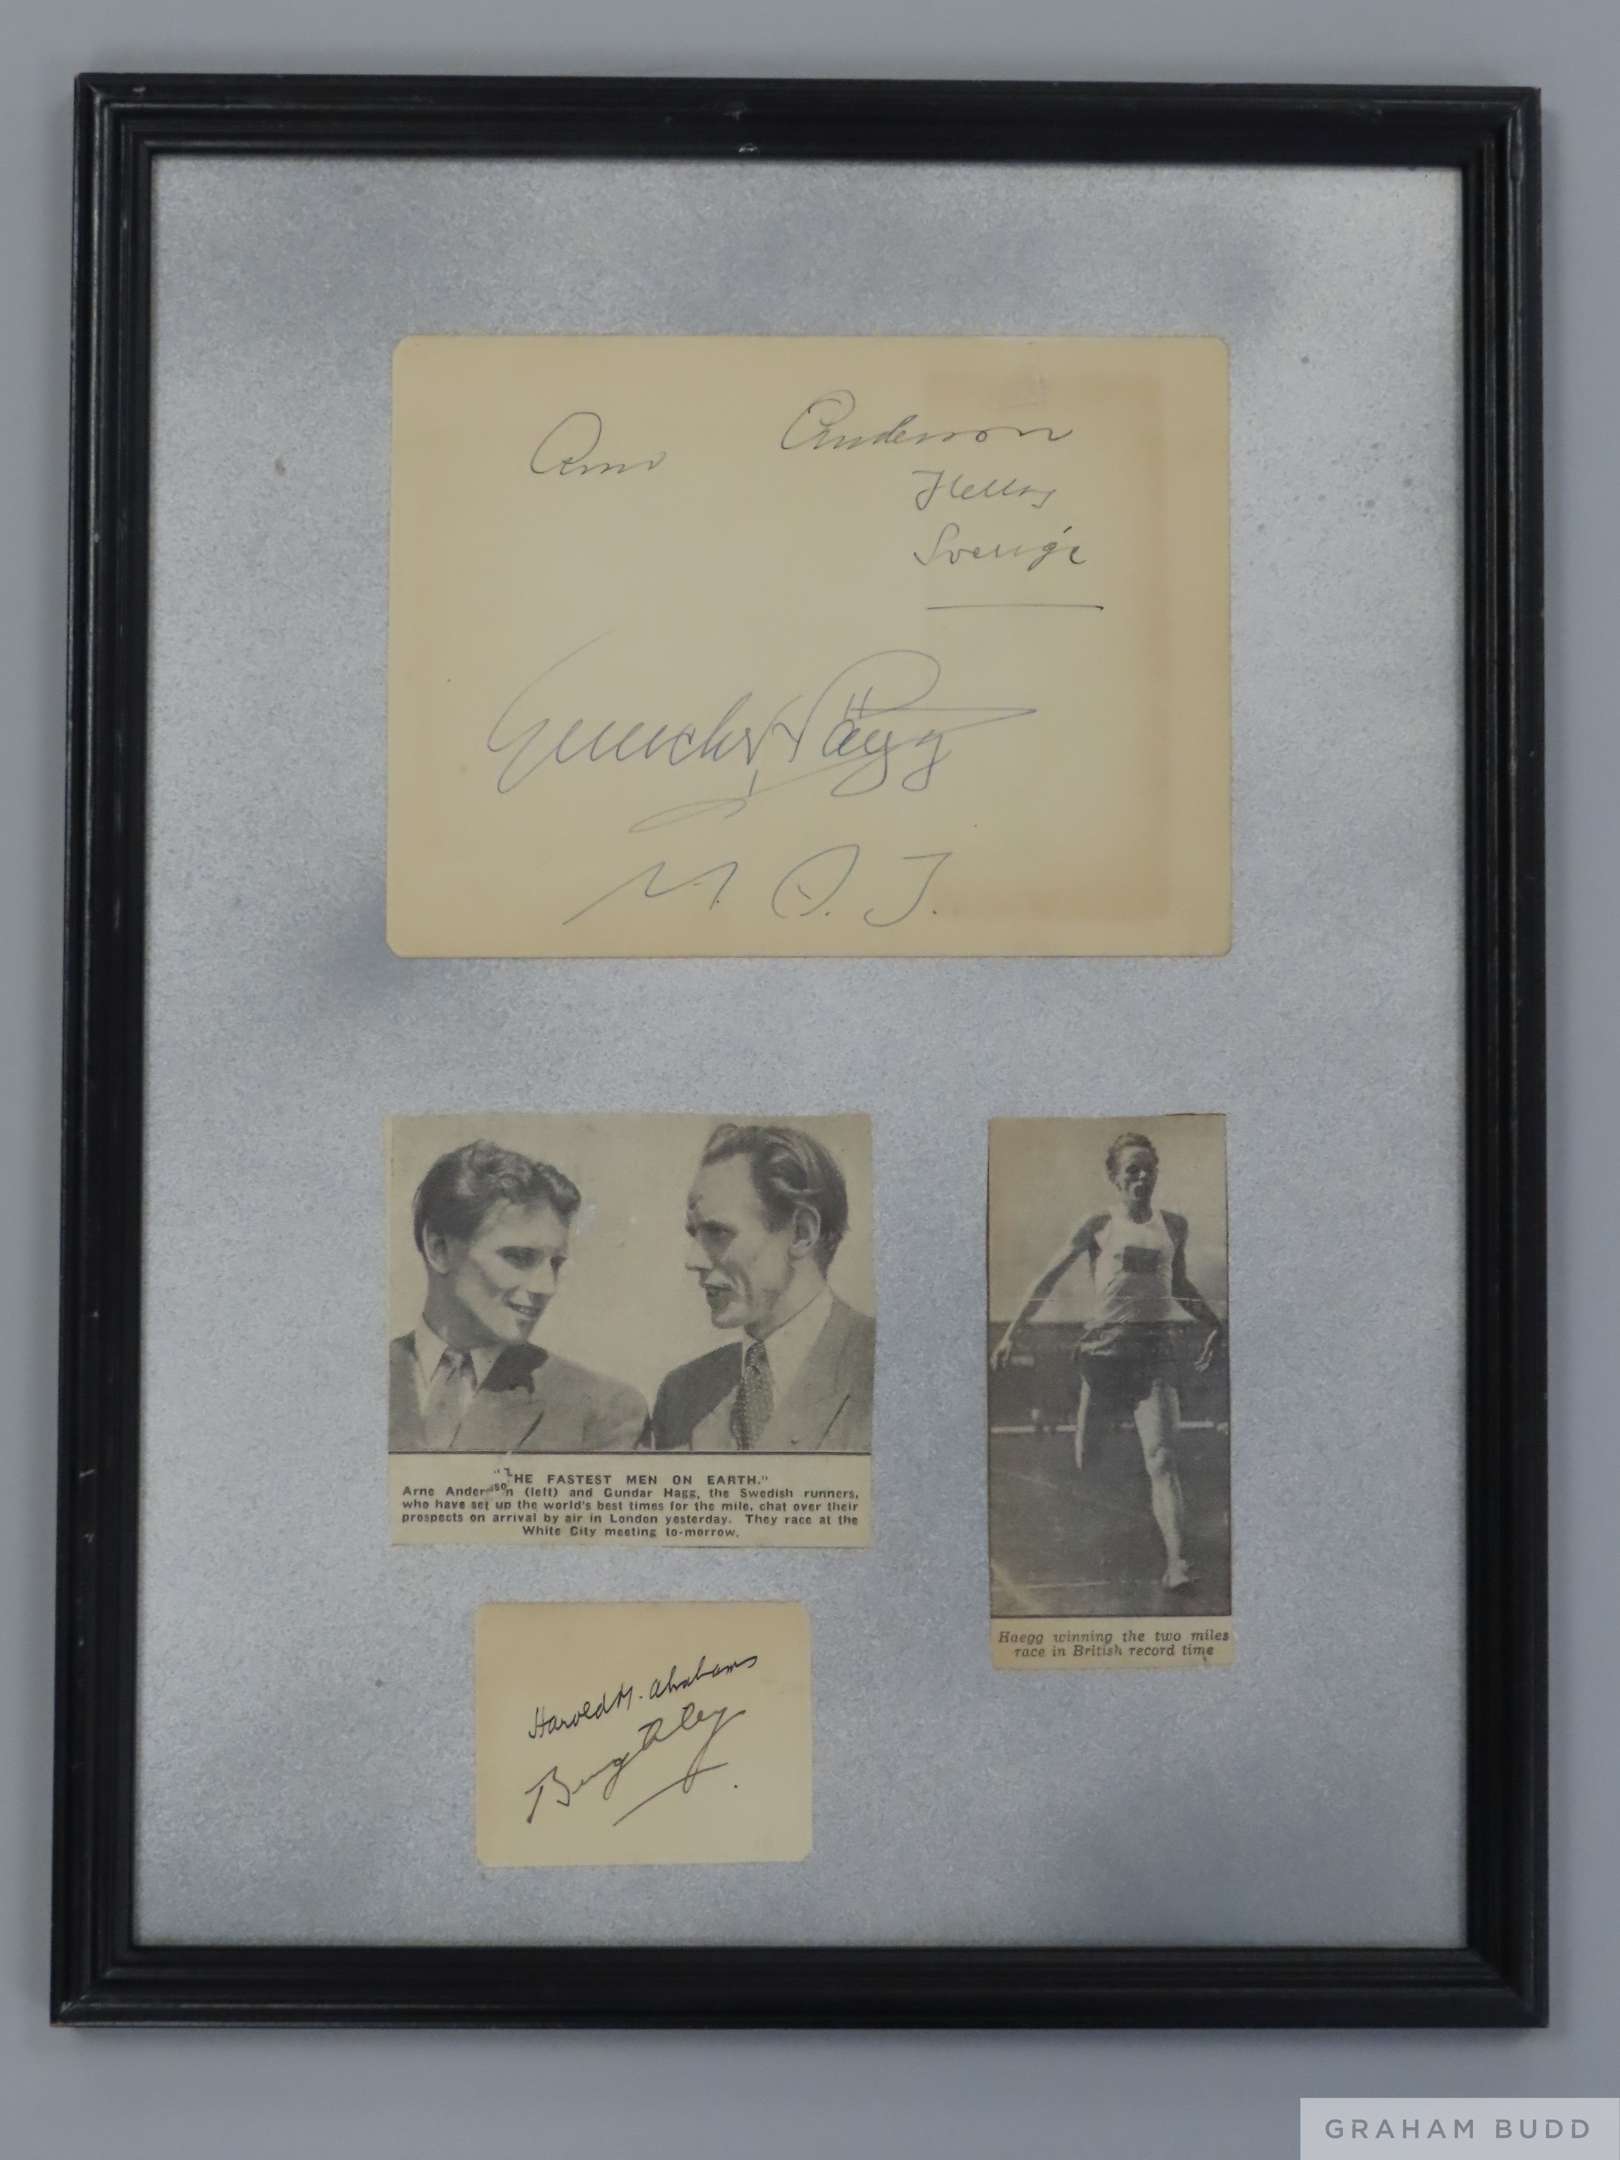 Arne Andersson
Hellas
Sverige
Gunder Hägg
M. A. I.
"THE FASTEST MEN ON EARTH."
Arne Andersson (left) and Gundar Hagg, the Swedish runners,
who have set up the world's best times for the mile, chat over their
prospects on arrival by air in London yesterday. They race at the
White City meeting to-morrow.
Haegg winning the two miles
race in British record time
Harold M. Abrahams
GRAHAM BUDD